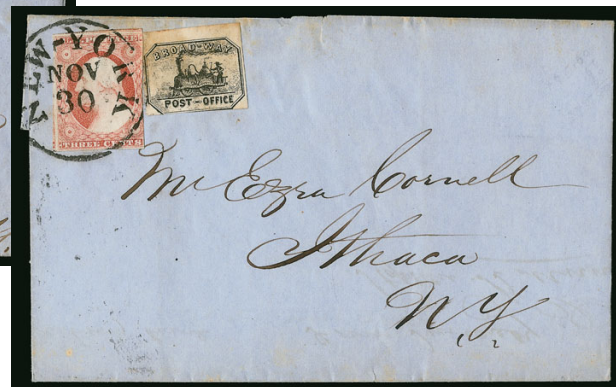 NEW-YORK
NOV
30
THREE CENTS
BROAD-WAY
POST-OFFICE
Mr Ezra Cornell
Ithaca
N.Y